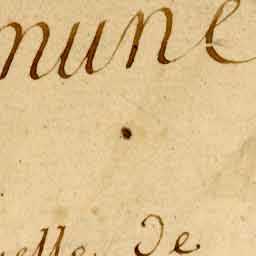 mune
elle de